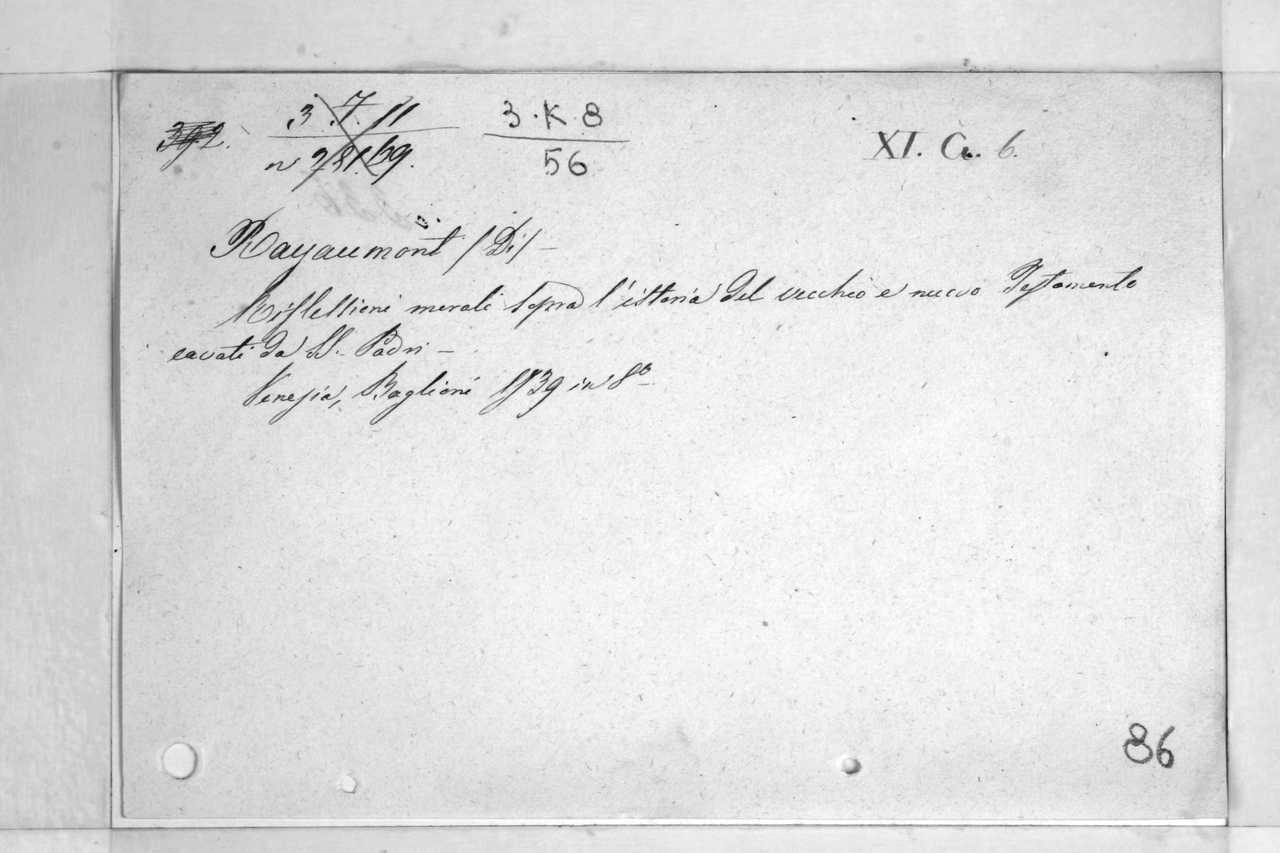 3.7.11 3.K.8 XI. C. 6.
56
Rayaumont /Di/ –
Riflessioni morali sopra l'istoria del vecchio e nuovo Testamento
cavati da SS. Padri –
Venezia, Baglioni 1739 in 8°
86